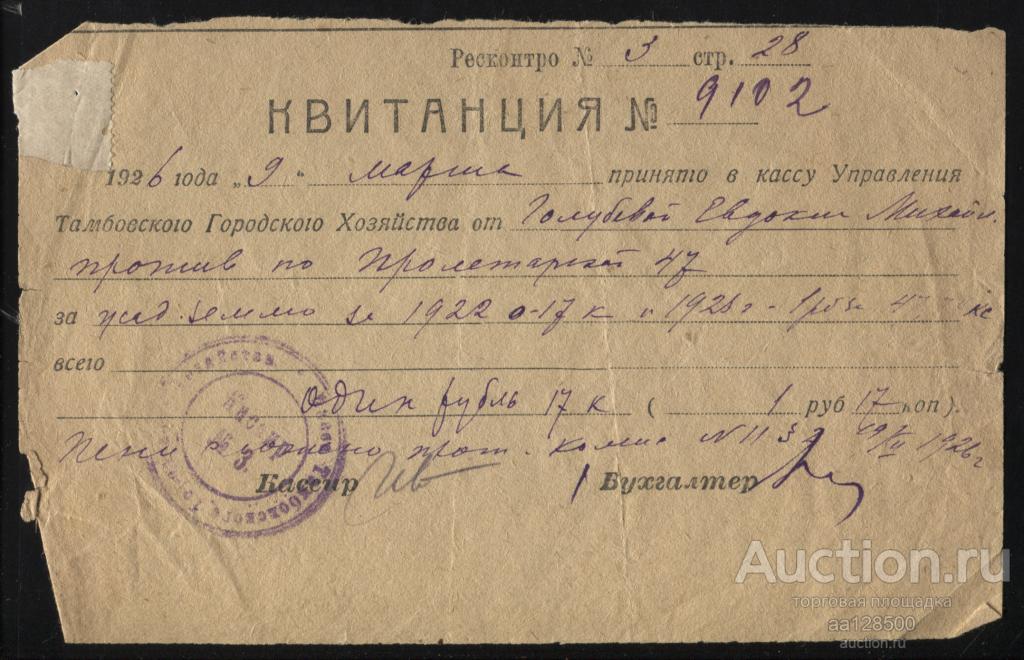 Ресконтро № 3 стр. 28
КВИТАНЦИЯ № 9102
1926 года „9“ марта принято в кассу Управления
Тамбовского Городского Хозяйства от Голубевой Евдокии Михайл.
против по Пролетарской 47
за землю за 1922 0-17 к и 1925 г - 1 р
всего
один рубль 17 к ( 1 руб 17 коп ).
Пени прот. комис N 113 1926 г
Кассир Бухгалтер
Auction.ru
торговая площадка
aa128500
auction.ru